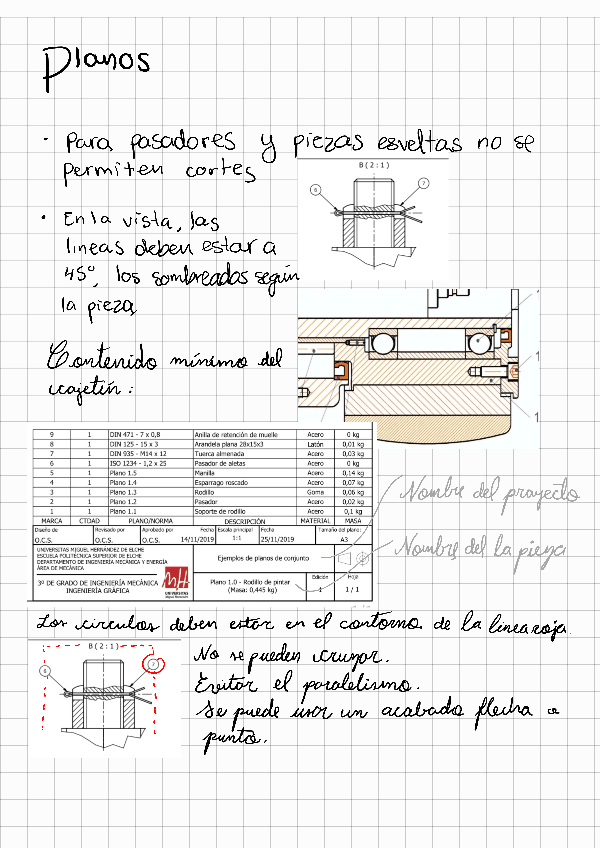 Planos
· Para pasadores y piezas esveltas no se
permiten cortes
B(2:1)
6
7
· En la vista, las
lineas deben estar a
45º, los sombreados según
la pieza
Contenido mínimo del
cajetín:
9 1 DIN 471 - 7 x 0,8 Anilla de retención de muelle Acero 0 kg
8 1 DIN 125 - 15 x 3 Arandela plana 28x15x3 Latón 0,01 kg
7 1 DIN 935 - M14 x 12 Tuerca almenada Acero 0,03 kg
6 1 ISO 1234 - 1,2 x 25 Pasador de aletas Acero 0 kg
5 1 Plano 1.5 Manilla Acero 0,14 kg
4 1 Plano 1.4 Esparrago roscado Acero 0,07 kg
3 1 Plano 1.3 Rodillo Goma 0,06 kg
2 1 Plano 1.2 Pasador Acero 0,02 kg
1 1 Plano 1.1 Soporte de rodillo Acero 0,1 kg
MARCA CTIDAD PLANO/NORMA DESCRIPCIÓN MATERIAL MASA
Diseño de Revisado por Aprobado por Fecha Escala principal Fecha Tamaño del plano:
O.C.S. O.C.S. O.C.S. 14/11/2019 1:1 25/11/2019 A3
UNIVERSITAS MIGUEL HERNÁNDEZ DE ELCHE
ESCUELA POLITECNICA SUPERIOR DE ELCHE
DEPARTAMENTO DE INGENIERÍA MECÁNICA Y ENERGÍA
ÁREA DE MECÁNICA
Ejemplos de planos de conjunto
3º DE GRADO DE INGENIERÍA MECÁNICA
INGENIERÍA GRÁFICA
UNIVERSITAS
Miguel Hernández
Plano 1.0 - Rodillo de pintar
(Masa: 0,445 kg)
Edición
1
Hoja
1 / 1
Nombre del proyecto
Nombre del la pieza
Los circulos deben estar en el contorno de la linea roja
B(2:1)
6
7
No se pueden cruzar.
Evitar el paralelismo.
Se puede usar un acabado flecha o
punto.